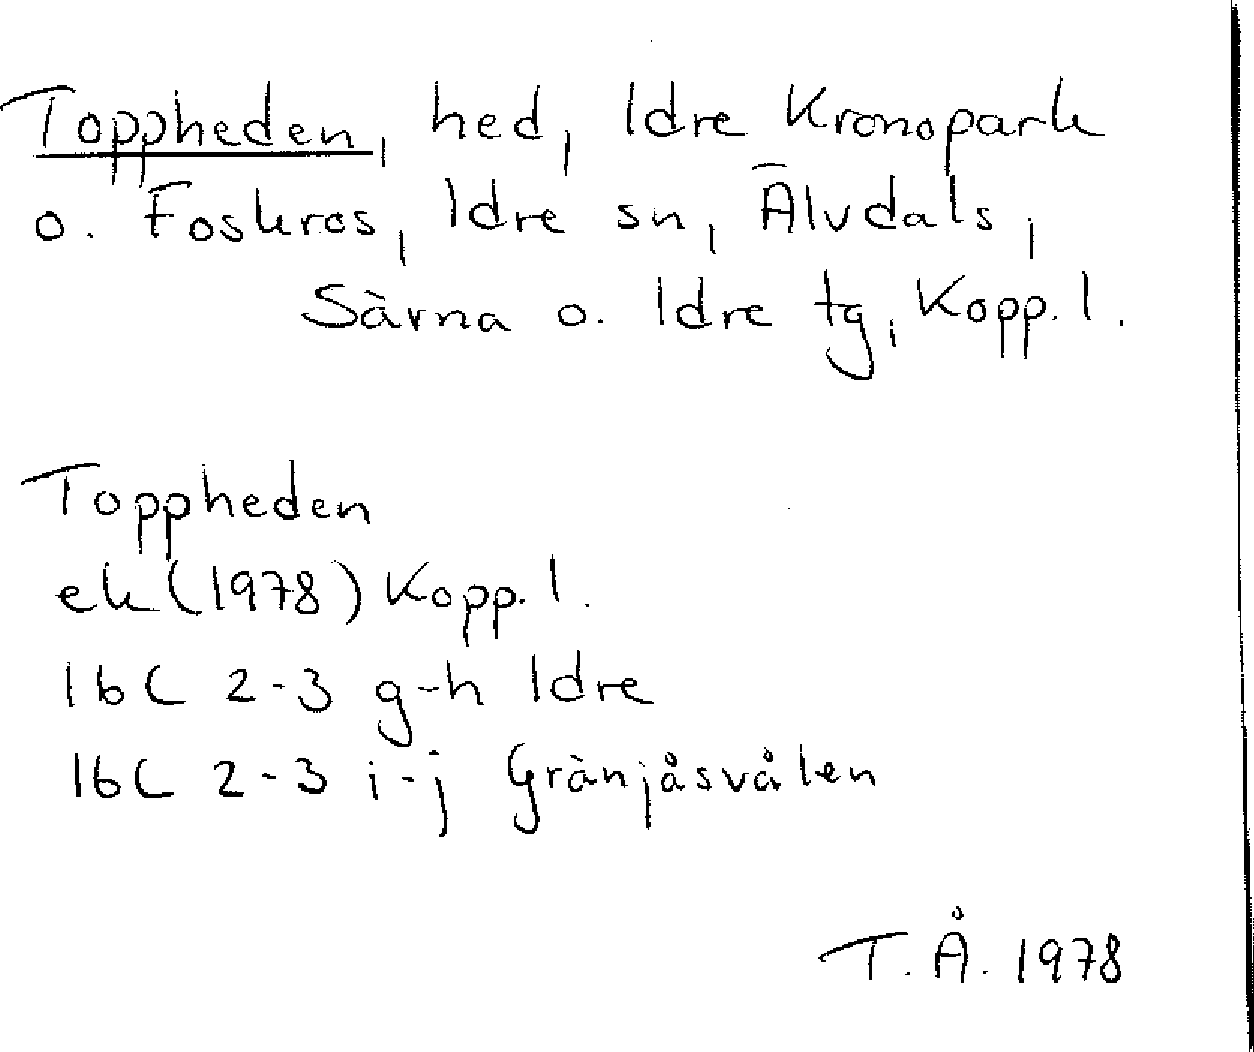 Toppheden, hed, Idre Kronopark
o. Foskros, Idre sn, Älvdals,
Särna o. Idre tg, Kopp. l.
Toppheden
ek (1978) Kopp. l.
16C 2-3 g-h Idre
16C 2-3 i-j Gränjåsvålen
T. Å. 1978